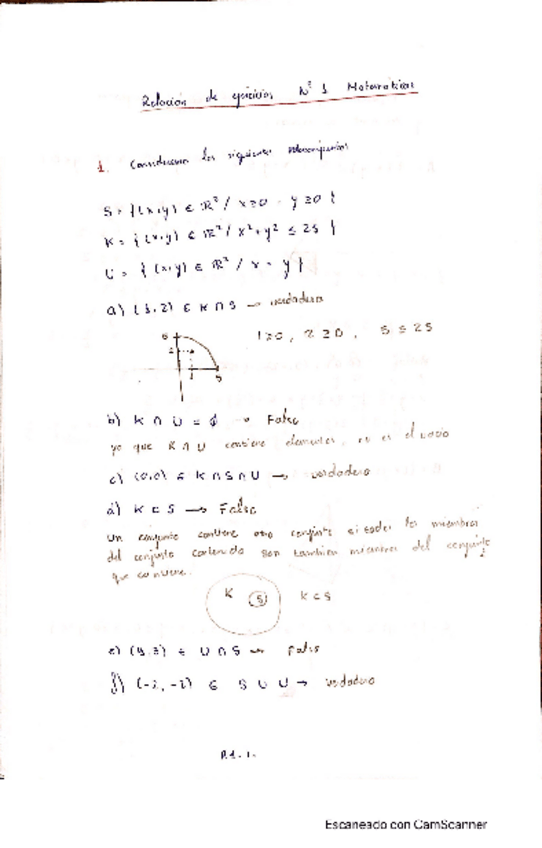 Relación de ejercicios Nº 1 Matemáticas
1. Consideramos los siguientes subconjuntos
S = {(x,y) ∈ ℝ² / x≥0 - y≥0}
K = {(x,y) ∈ ℝ² / x²+y² ≤ 25}
U = {(x,y) ∈ ℝ² / x = y}
a) (1,2) ∈ K ∩ S → verdadero
1≥0, 2≥0, 5≤25
5
2
1 5
b) K ∩ U = ∅ → Falso
ya que K ∩ U contiene elementos, no es el vacío
c) (0,0) ∈ K ∩ S ∩ U → verdadero
d) K ⊂ S → Falso
Un conjunto contiene otro conjunto si todos los miembros
del conjunto contenido son también miembros del conjunto
que contiene.
K S K ⊂ S
e) (4,3) ∈ U ∩ S → Falso
f) (-2,-2) ∈ S ∪ U → verdadero
P.1-1-
Escaneado con CamScanner